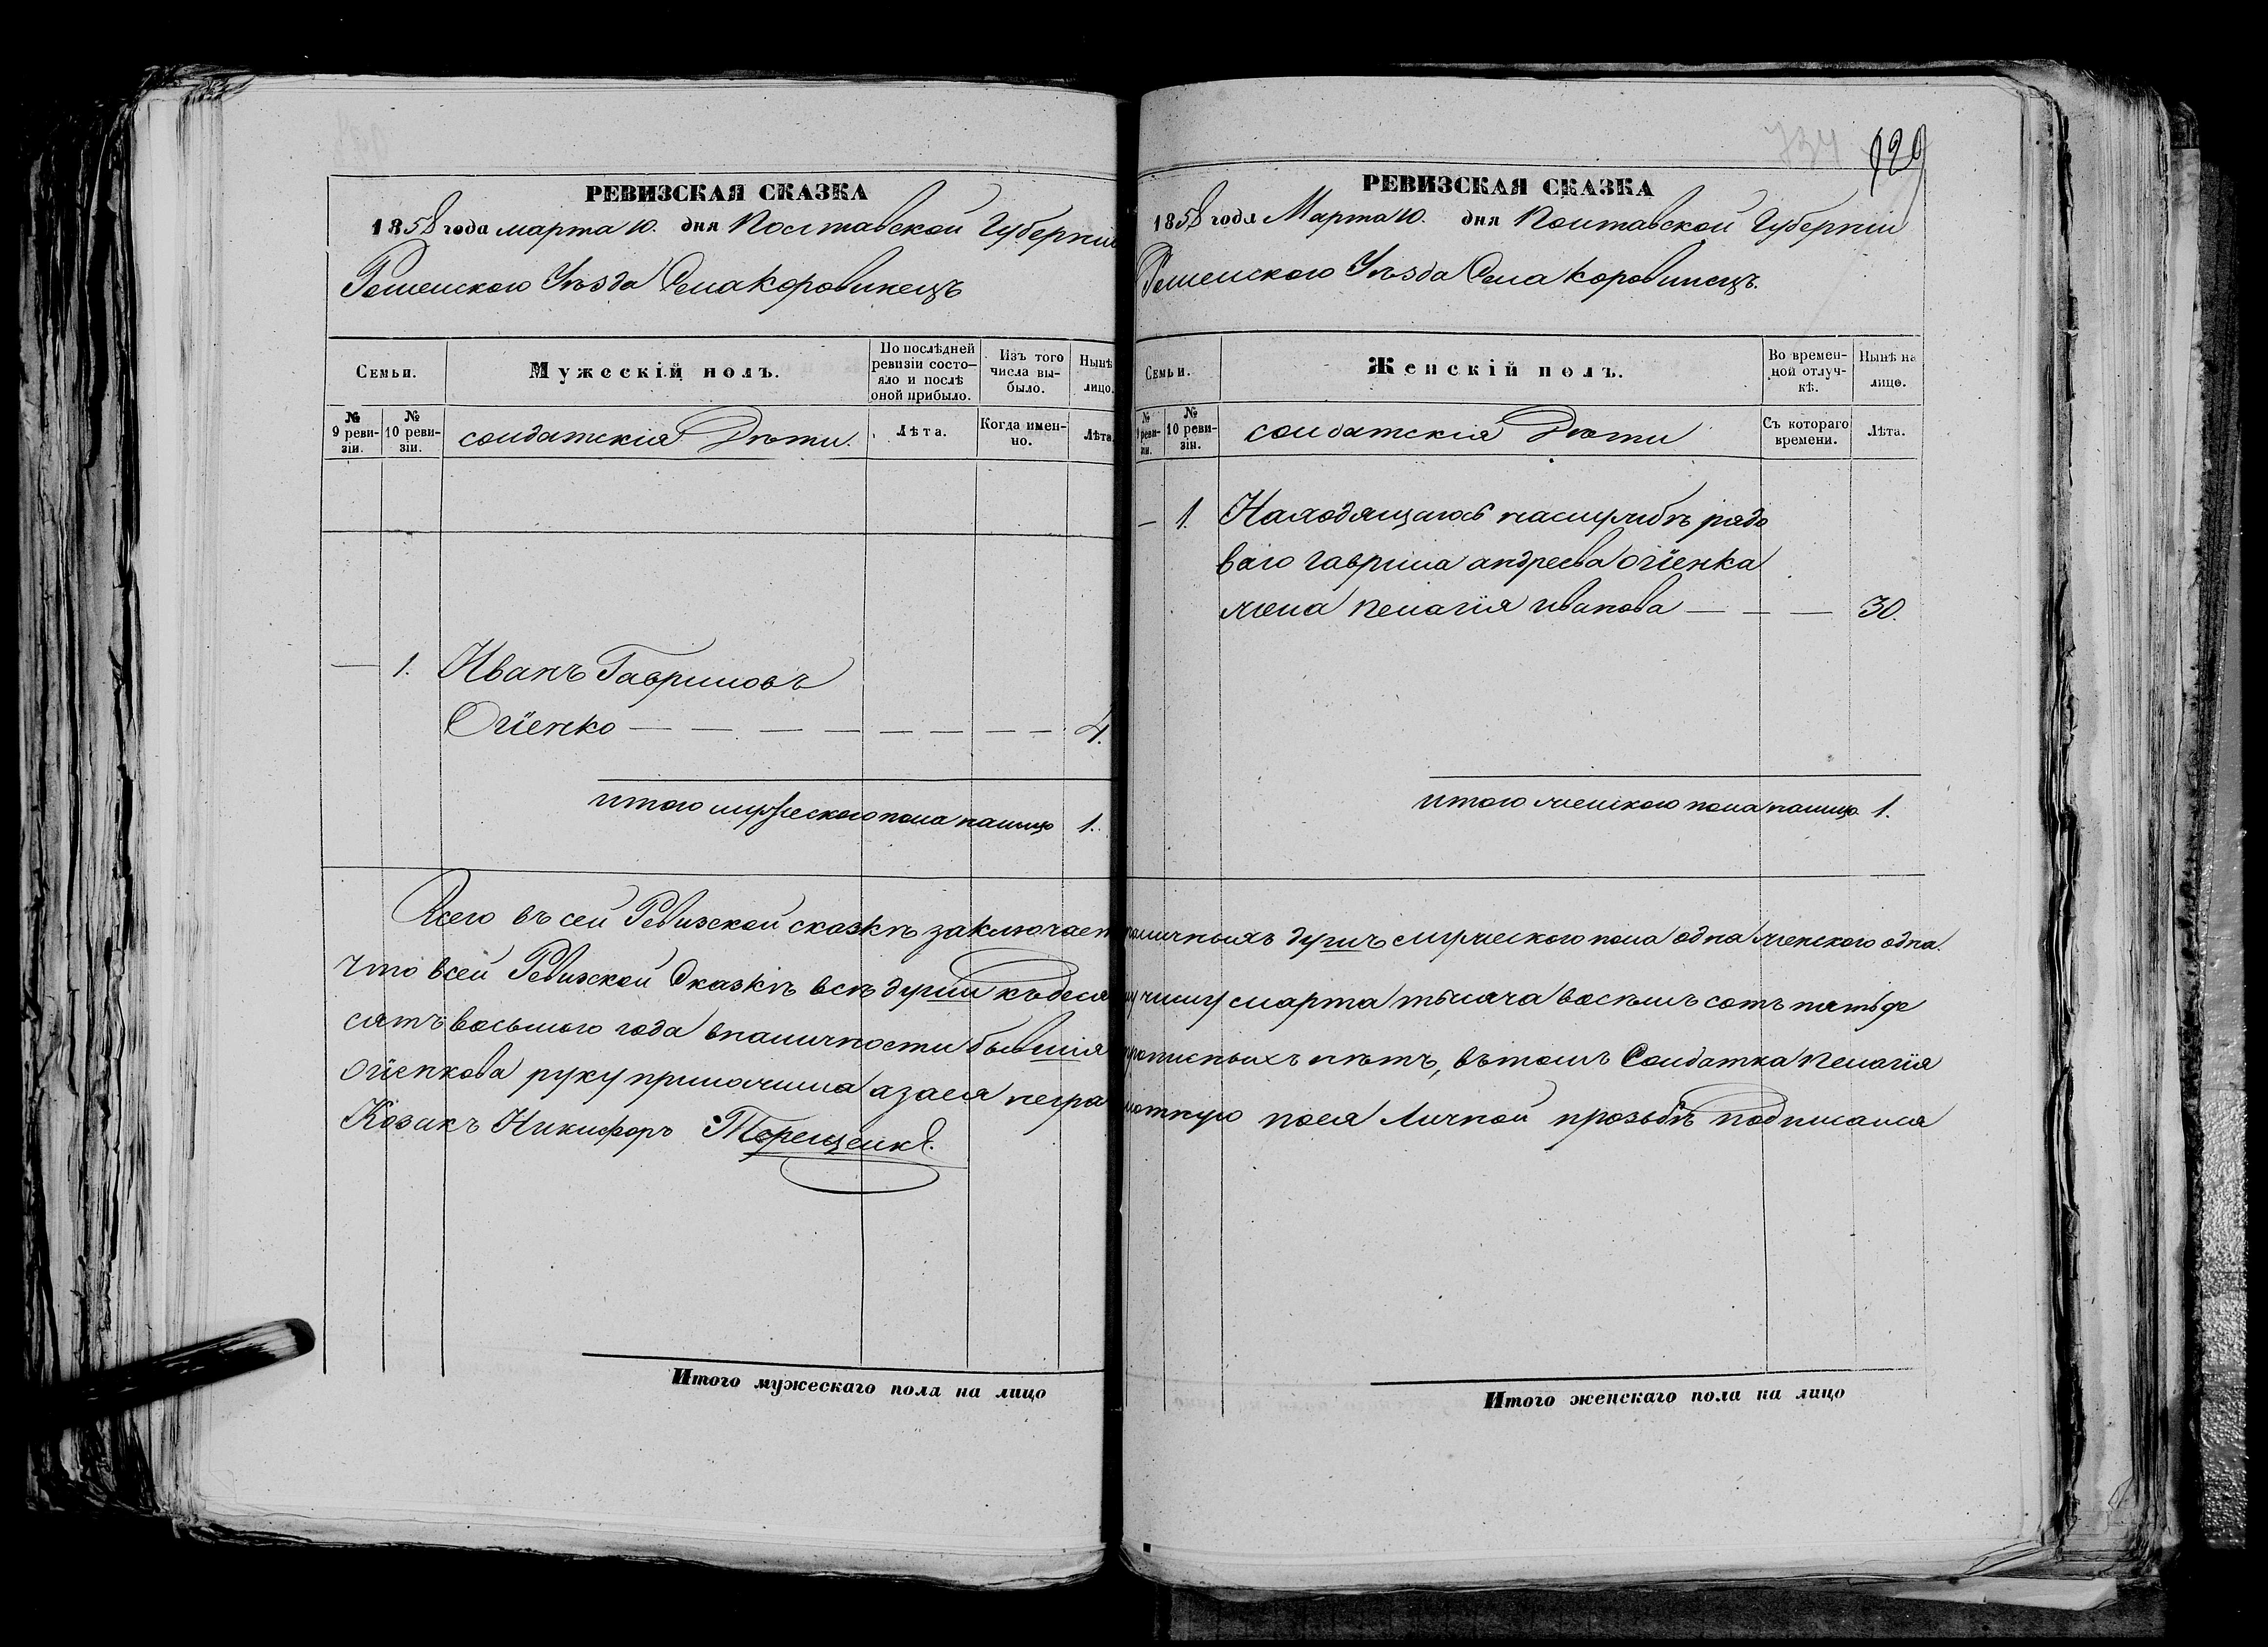 РЕВИЗСКАЯ СКАЗКА
1858 года марта 10. дня Полтавской Губерніи
Роменского Уѣзда Села Коровинецъ
Семьи.
Мужескій полъ.
По послѣдней ревизіи состояло и послѣ оной прибыло.
Изъ того числа выбыло.
Нынѣ лицо.
№ 9 ревизіи.
№ 10 ревизіи.
солдатскія Дѣти.
Лѣта.
Когда именно.
Лѣта
— 1. Иванъ Гавриловъ
Огіенко — — — — — — — — 4.
итого мужеского пола налицо 1.
Всего въ сей Ревизской сказкѣ заключает
что всей Ревизской Сказкѣ всѣ души къ деся
сятъ восьмого года вналичности бывшія
Огіенкова руку приложила азаея негра
Козакъ Никифоръ Терещенко.
Итого мужескаго пола на лицо
729
734
РЕВИЗСКАЯ СКАЗКА
1858 года Марта 10. дня Полтавской Губерніи
Роменского Уѣзда Села Коровинецъ.
Семьи.
Женскій полъ.
Во временной отлучкѣ.
Нынѣ на лицо.
№ 9 ревизіи.
№ 10 ревизіи.
солдатскія Дѣти
Съ котораго времени.
Лѣта.
— 1. Находящагось наслужбѣ рядо
ваго гаврила андреева огіенка
жена пелагія иванова — — — 30.
итого женского пола налицо 1.
наличныхъ душъ мужеского пола одна женского одна.
му числу марта тысяча восемъ сотъ пятьде
прописныхъ нѣтъ, вътомъ Солдатка пелагія
мотную поея Личной прозьбѣ подписался
Итого женскаго пола на лицо